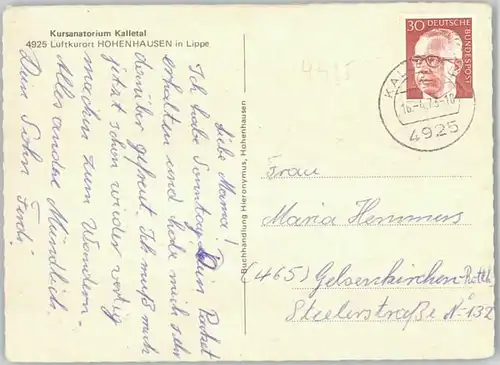 Kursanatorium Kalletal
4925 Luftkurort HOHENHAUSEN in Lippe
Liebe Mama!
Ich habe Sonntag Dein Packet
erhalten und habe mich sehr
darüber gefreut. Ich muß mich
jetzt schon wieder fertig
machen zum Wandern.
Alles andere Mündlich.
Dein Sohn Ferdi
Buchhandlung Hieronymus, Hohenhausen
4925
30 DEUTSCHE
BUNDESPOST
4925
Frau
Maria Hemmers
(465) Gelsenkirchen-Rotth.
Steelerstraße No 132